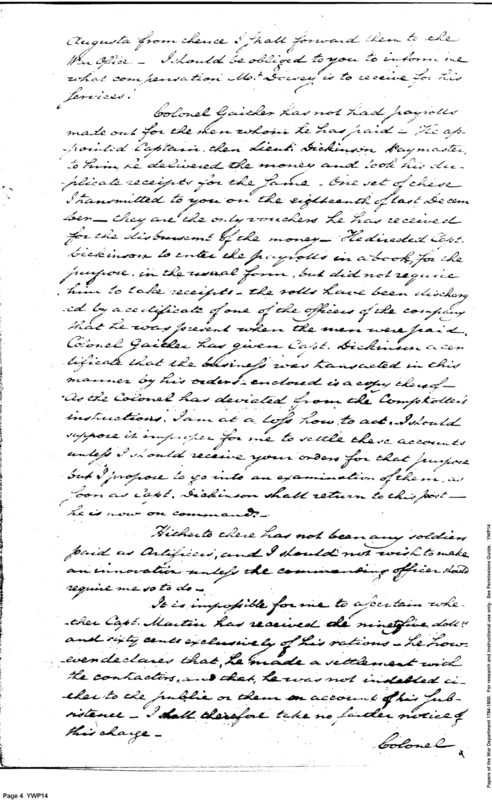 Augusta from thence I shall forward them to the
War Office – I should be obliged to you to inform me
what compensation Mr. Dowey is to receive for his
services.
Colonel Gaither has not had payrolls
made out for the men whom he has paid – He ap-
pointed Captain, then Lieut. Dickinson Paymaster,
to him he delivered the money and took his du-
plicate receipts for the same – One set of these
I transmitted to you on the eighteenth of last Decem
ber – they are the only vouchers he has received
for the disbursemt. of the money – He directed Capt.
Dickinson to enter the payrolls in a book, for the
purpose, in the usual form, but did not require
him to take receipts – the rolls have been discharg
ed by a certificate of one of the officers of the company
that he was present when the men were paid.
Colonel Gaither has given Capt. Dickinson a cer
tificate that the business was transacted in this
manner by his orders – enclosed is a copy thereof –
As the Colonel has deviated from the Comptroller's
instructions, I am at a loss how to act. I should
suppose it improper for me to settle these accounts
unless I should receive your orders for that purpose
but I propose to go into an examination of them, as
soon as Capt. Dickinson shall return to this post –
he is now on command. –
Hitherto there has not been any soldiers
paid as Artificers, and I should not wish to make
an innovation unless the commanding officer should
require me so to do –
It is impossible for me to ascertain whe-
ther Capt. Martin has received the ninety five dolls.
and sixty cents exclusively of his rations – he how-
ever declares that, he made a settlement with
the contractors, and that, he was not indebted ei-
ther to the public or them on account of his Sub-
sistence – I shall therefore take no farther notice of
this charge –
Colonel
Page 4 YWP14
Papers of the War Department 1784-1800. For research and instructional use only. See Permissions Guide. YWP14